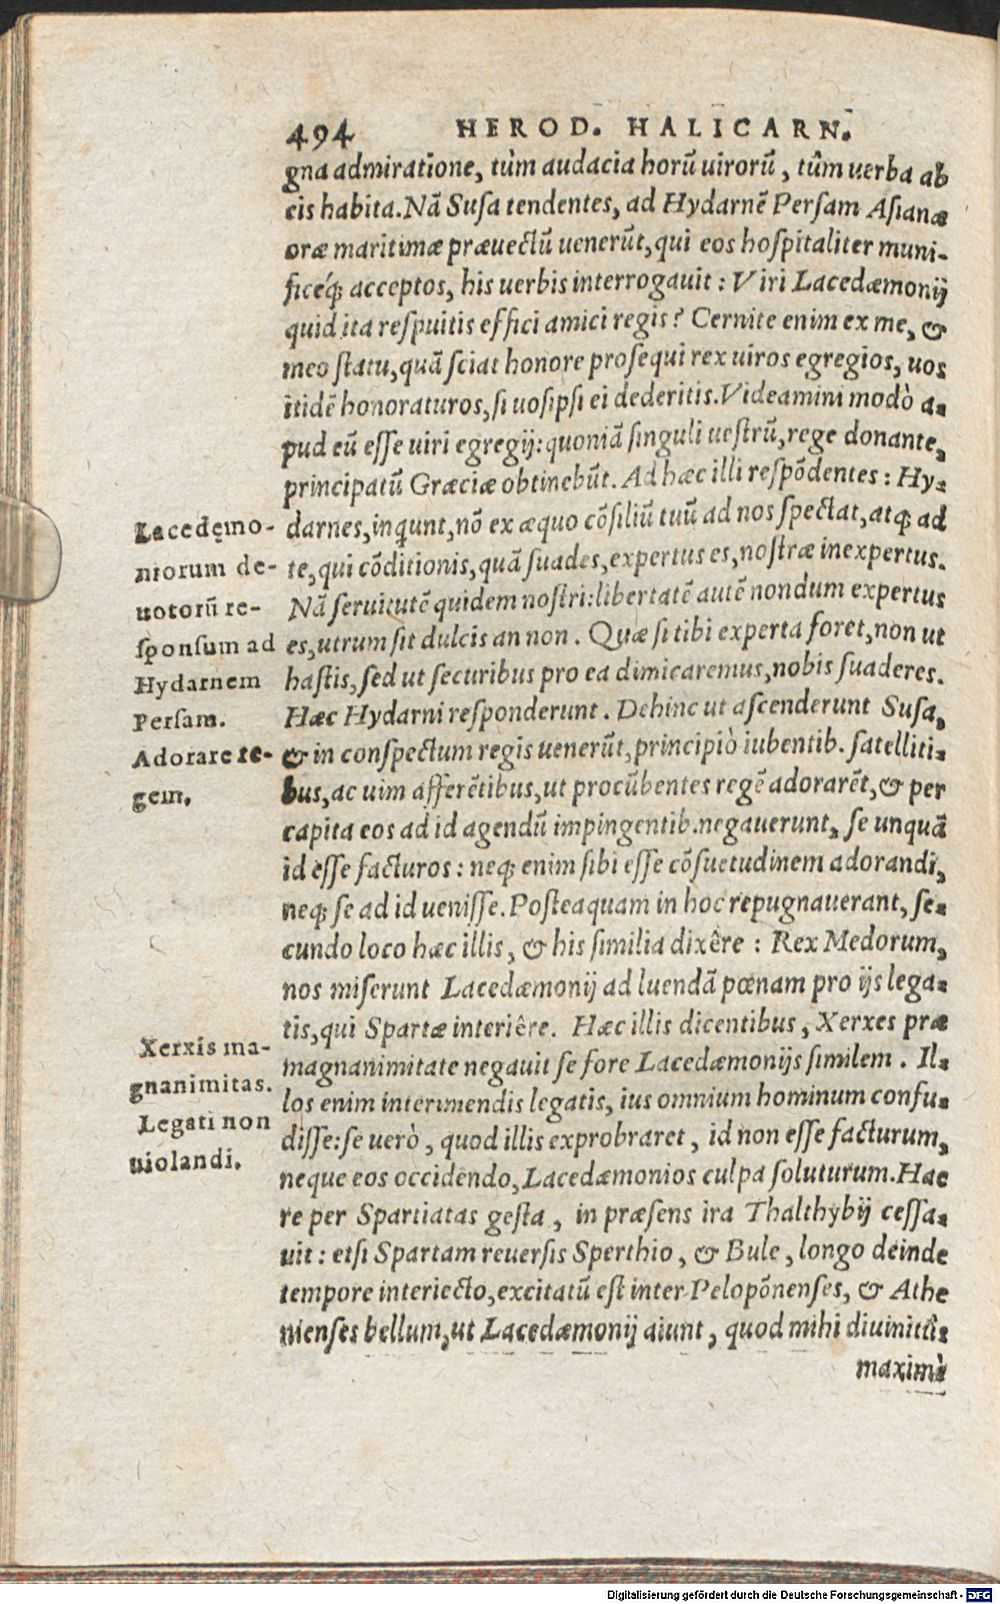 494 HEROD. HALICARN.
gna admiratione, tùm audacia horũ uirorũ, tûm uerba ab
eis habita. Nã Susa tendentes, ad Hydarnẽ Persam Asianæ
oræ maritimæ præuectũ uenerũt, qui eos hospitaliter muni-
ficéq; acceptos, his uerbis interrogauit: Viri Lacedæmonij
quid ita respuitis effici amici regis? Cernite enim ex me, &
meo statu, quã sciat honore prosequi rex uiros egregios, uos
itidẽ honoraturos, si uosipsi ei dederitis. Videamini modò a-
pud eũ esse uiri egregij: quoniã singuli uestrũ, rege donante,
principatũ Græciæ obtinebũt. Ad hæc illi respõdentes: Hy-
darnes, inqunt, nõ ex æquo cõsiliũ tuũ ad nos spectat, atq; ad
te, qui cõditionis, quã suades, expertus es, nostræ inexpertus.
Nã seruitutẽ quidem nostri: libertatẽ autẽ nondum expertus
es, utrum sit dulcis an non. Quæ si tibi experta foret, non ut
hastis, sed ut securibus pro ea dimicaremus, nobis suaderes.
Hæc Hydarni responderunt. Dehinc ut ascenderunt Susa,
& in conspectum regis uenerũt, principiò iubentib. satelliti-
bus, ac uim afferẽtibus, ut procũbentes regẽ adorarẽt, & per
capita eos ad id agendũ impingentib. negauerunt, se unquã
id esse facturos: neq; enim sibi esse cõsuetudinem adorandi,
neq; se ad id uenisse. Posteaquam in hoc repugnauerant, se-
cundo loco hæc illis, & his similia dixêre: Rex Medorum,
nos miserunt Lacedæmonij ad luendã pœnam pro ijs lega-
tis, qui Spartæ interiêre. Hæc illis dicentibus, Xerxes præ
magnanimitate negauit se fore Lacedæmonijs similem. Il-
los enim interimendis legatis, ius omnium hominum confu-
disse: se uerò, quod illis exprobraret, id non esse facturum,
neque eos occidẽndo, Lacedæmonios culpa soluturum. Hac
re per Spartiatas gesta, in præsens ira Thalthybij cessa-
uit: etsi Spartam reuersis Sperthio, & Bule, longo deinde
tempore interiecto, excitatũ est inter Pelopõnenses, & Athe
nienses bellum, ut Lacedæmonij aiunt, quod mihi diuinitùs
maximè
Lacedęmo-
niorum de-
uotorũ re-
sponsum ad
Hydarnem
Persam.
Adorare re-
gem.
Xerxis ma-
gnanimitas.
Legati non
uiolandi.
Digitalisierung gefördert durch die Deutsche Forschungsgemeinschaft - DFG